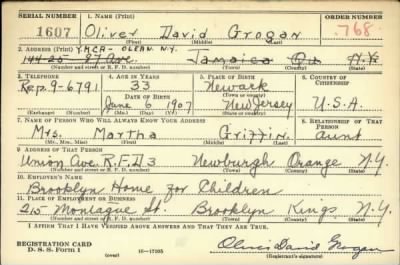 SERIAL NUMBER 1. NAME (Print) ORDER NUMBER
1607 Oliver David Grogan 768
(First) (Middle) (Last)
2. ADDRESS (Print) Y.M.C.A - OLEAN N.Y.
144-25 87 Ave. Jamaica Qu N.Y.
(Number and street or R. F. D. number) (Town) (County) (State)
3. TELEPHONE 4. AGE IN YEARS 5. PLACE OF BIRTH 6. COUNTRY OF CITIZENSHIP
Rep. 9-6791 33 Newark
DATE OF BIRTH (Town or county)
June 6 1907 New Jersey U.S.A.
(Exchange) (Number) (Mo.) (Day) (Yr.) (State or country)
7. NAME OF PERSON WHO WILL ALWAYS KNOW YOUR ADDRESS 8. RELATIONSHIP OF THAT PERSON
Mrs. Martha Griffin Aunt
(Mr., Mrs., Miss) (First) (Middle) (Last)
9. ADDRESS OF THAT PERSON
Union Ave. R.F.D 3 Newburgh Orange N.Y.
(Number and street or R. F. D. number) (Town) (County) (State)
10. EMPLOYER'S NAME
Brooklyn Home for Children
11. PLACE OF EMPLOYMENT OR BUSINESS
215 Montague St. Brooklyn Kings N.Y.
(Number and street or R. F. D. number) (Town) (County) (State)
I AFFIRM THAT I HAVE VERIFIED ABOVE ANSWERS AND THAT THEY ARE TRUE.
REGISTRATION CARD
D. S. S. Form 1 (over) 16—17105 Oliver David Grogan
(Registrant's signature)